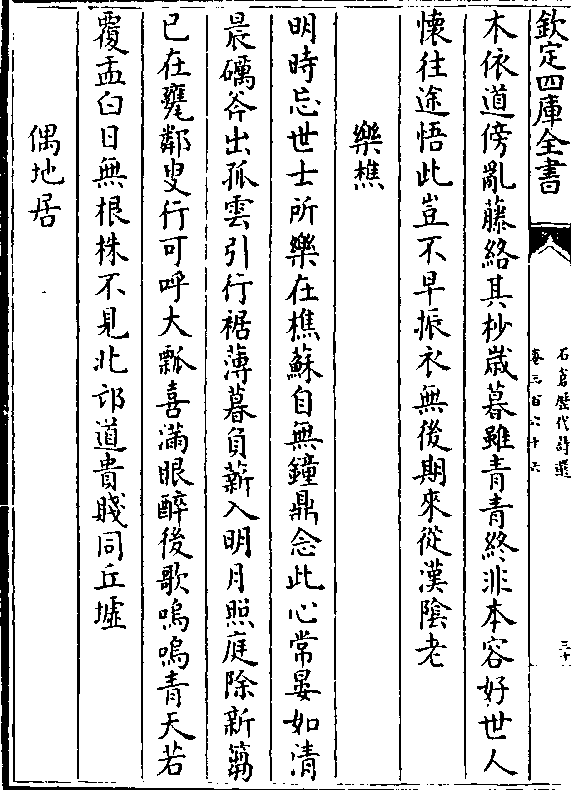 欽定四庫全書
石倉歷代詩選
卷三百六十六
三十
木依道傍亂藤絡其杪歲暮雖青青終非本容好世人
懷往途悟此豈不早振衣無後期來從漢陰老
樂樵
明時忘世士所樂在樵蘇自無鐘鼎念此心常晏如清
晨礪斧出孤雲引行裾薄暮負薪入明月照庭除新篘
已在甕鄰叟行可呼大瓢喜滿眼醉後歌嗚嗚青天若
覆盂白日無根株不見北邙道貴賤同丘墟
偶地居